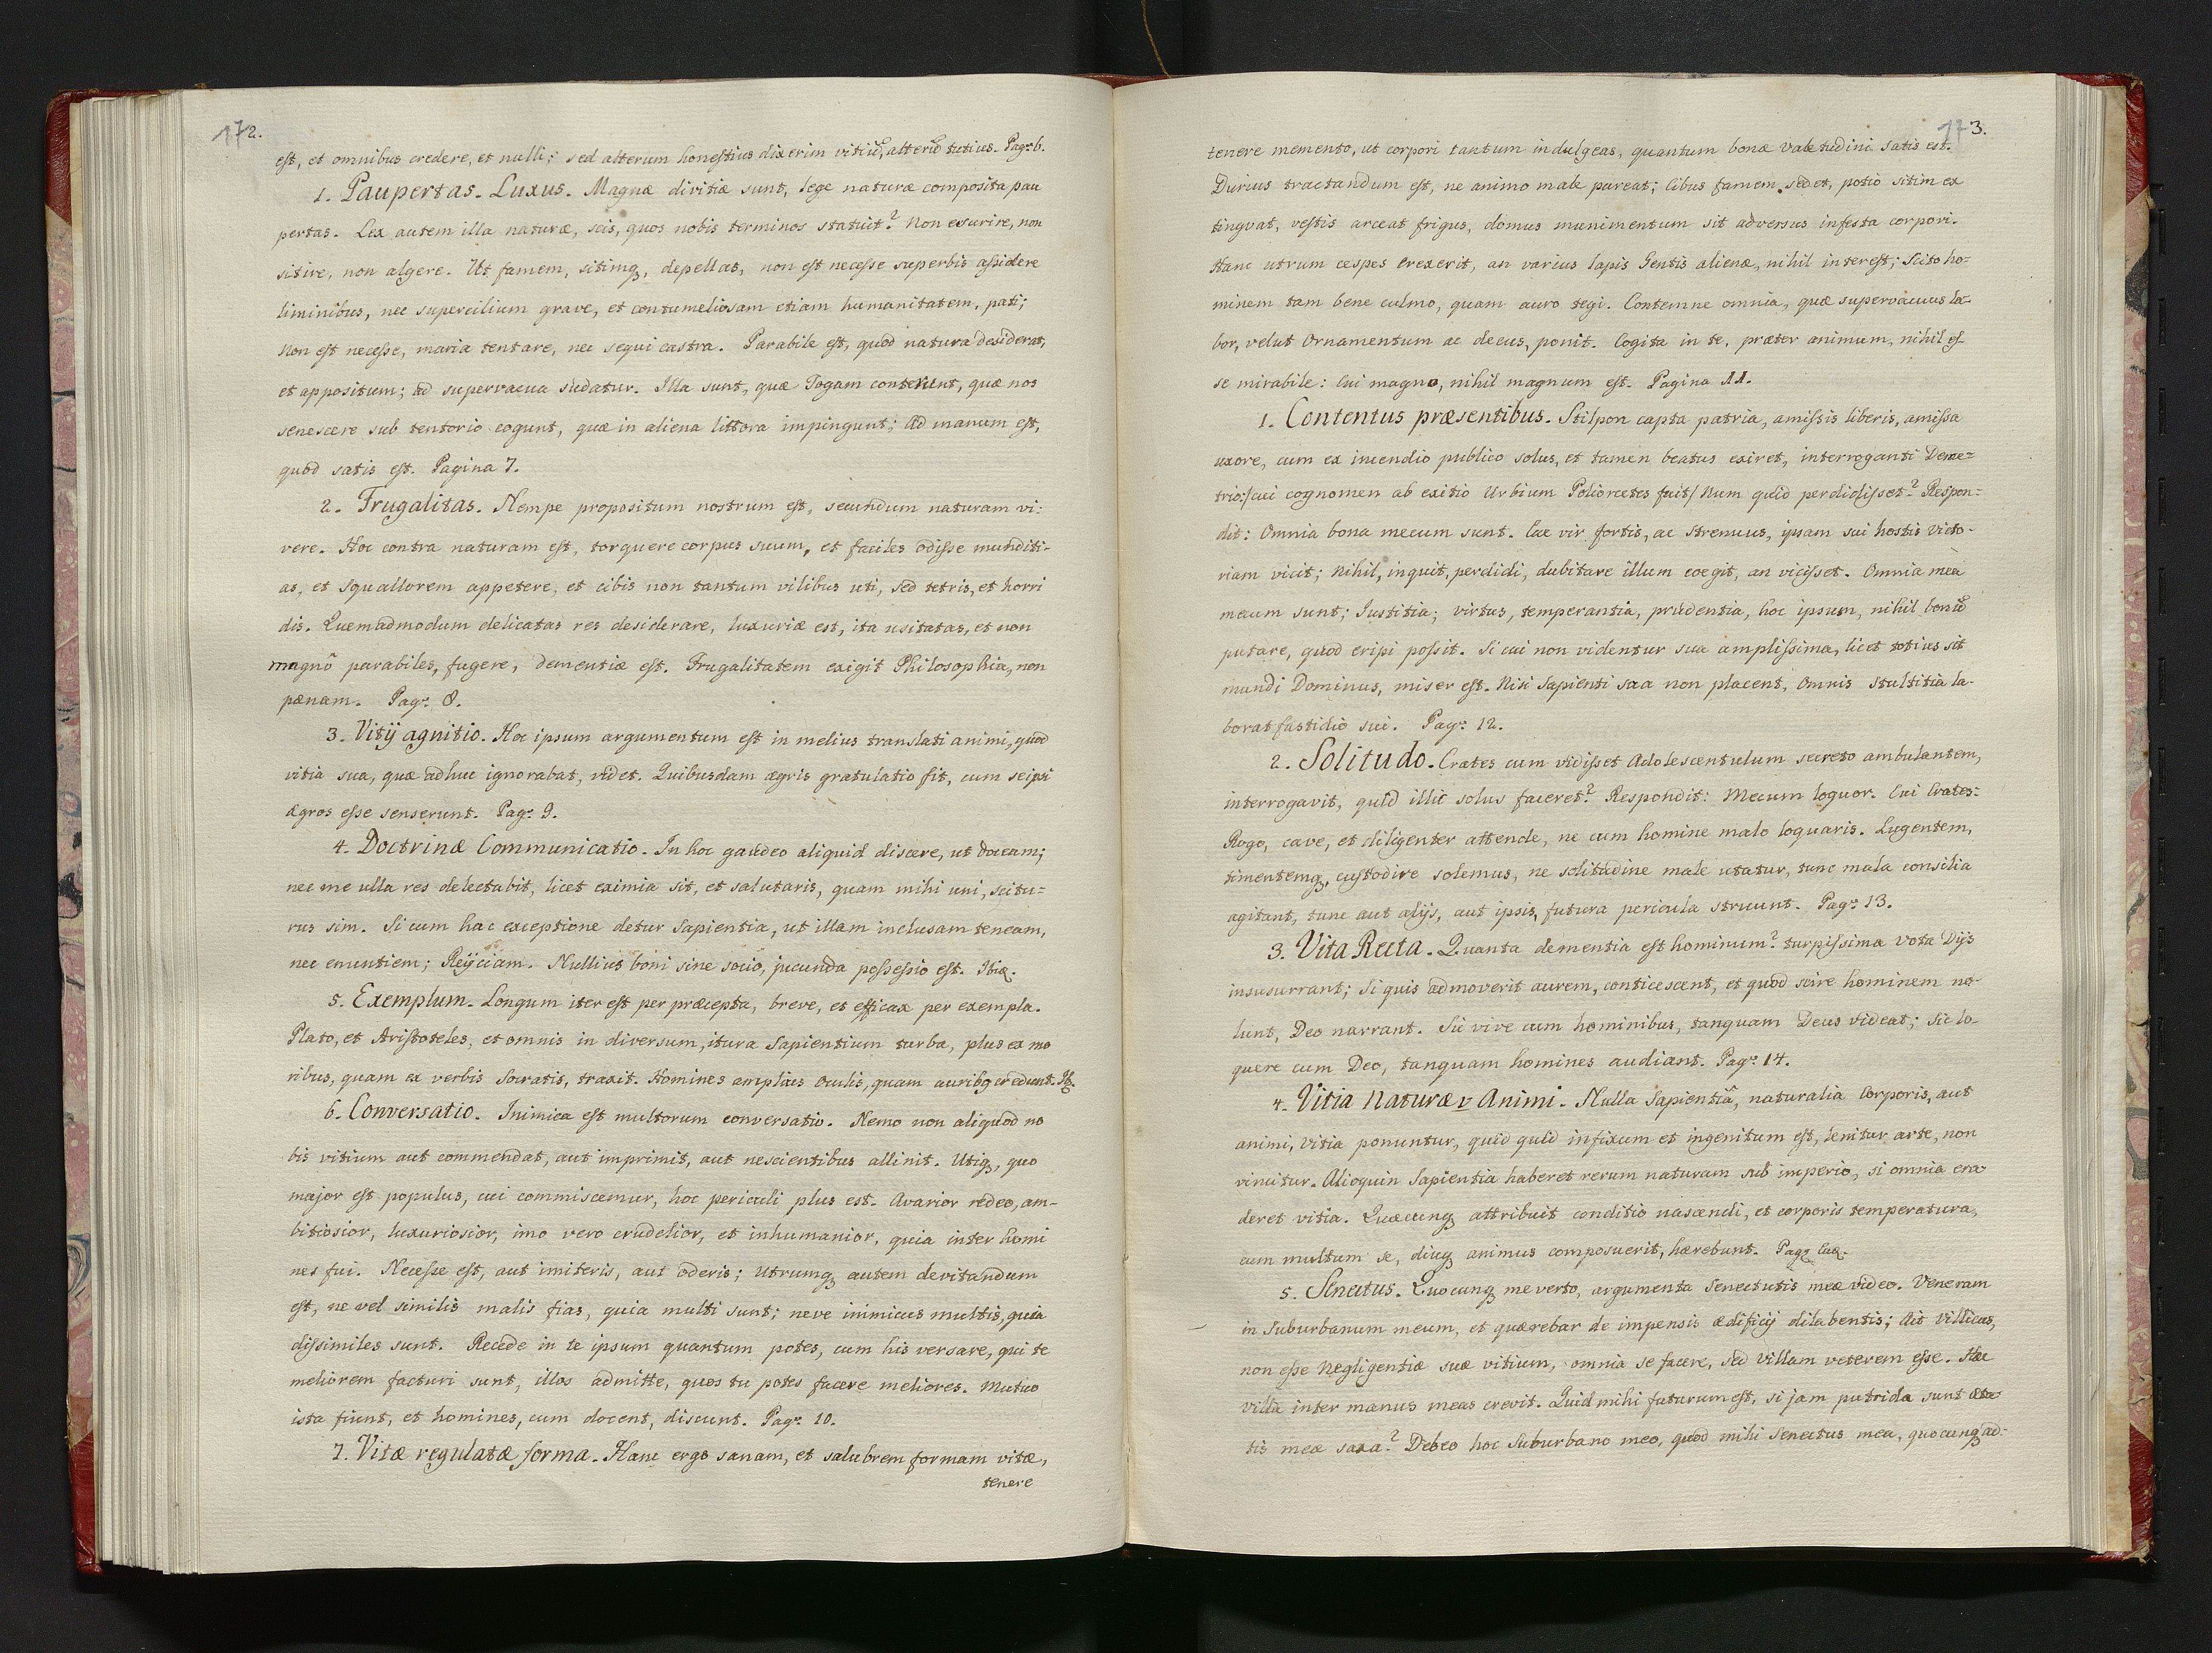 172.
est, et omnibus credere, et nulli; sed alterum honestius dixerim vitiū, alterū tutius. Pag: 6.
1. Paupertas. Luxus. Magnæ divitiæ sunt, lege naturæ composita pau
pertas. Lex autem illa naturæ, scis, quos nobis terminos statuit? Non esurire, non
sitire, non algere. Ut famem, sitimq, depellas, non est necesse superbis assidere
liminibus, nec supercilium grave, et contumeliosam etiam humanitatem, pati;
Non est necesse, maria tentare, nec sequi castra. Parabile est, quod natura desiderat,
et appositum; ad supervacua sudatur. Illa sunt, quæ Togam conterunt, quæ nos
senescere sub tentorio cogunt, quæ in aliena littora impingunt; Ad manum est,
quod satis est. Pagina 7.
2. Frugalitas. Nempe propositum nostrum est, secundum naturam vi:
vere. Hoc contra naturam est, torquere corpus suum, et faciles odisse munditi-
as, et squallorem appetere, et cibis non tantum vilibus uti, sed tetris, et horri
dis. Quemadmodum delicatas res desiderare, luxuriæ est, ita usitatas, et non
magnô parabiles, fugere, dementiæ est. Frugalitatem exigit Philosophia, non
pænam. Pag: 8.
3. Vitij agnitio. Hoc ipsum argumentum est in melius translati animi, quod
vitia sua, quæ adhuc ignorabat, videt. Quibusdam ægris gratulatio fit, cum seipsi
ægros esse senserunt. Pag: 9.
4. Doctrinæ Communicatio. In hoc gaudeo aliquid discere, ut doceam;
nec me ulla res delectabit, licet eximia sit, et salutaris, quam mihi uni, scitu=
rus sim. Si cum hac exceptione detur Sapientia, ut illam inclusam teneam,
nec enuntiem; Reijciam. Nullius boni sine socio, jucunda possessio est. Ibiq.
5. Exemplum. Longum iter est per præcepta, breve, et efficax per exempla.
Plato, et Aristoteles, et omnis in diversum, itura Sapientium turba, plus ex mo
ribus, quam ex verbis Socratis, traxit. Homines amplius oculis, quam auribq credunt. Ib.
6. Conversatio. Inimica est multorum conversatio. Nemo non aliquod no
bis vitium aut commendat, aut imprimit, aut nescientibus allinit. Utiq, quo
major est populus, cui commiscemur, hoc periculi plus est. Avarior redeo, am-
bitiosior, luxuriosior, imo vero crudelior, et inhumanior, quia inter homi
nes fui. Necesse est, aut imiteris, aut oderis; Utrumq autem devitandum
est, ne vel similis malis fias, quia multi sunt; neve inimicus multis, quia
dissimiles sunt. Recede in te ipsum quantum potes, cum his versare, qui te
meliorem facturi sunt, illos admitte, quos tu potes facere meliores. Mutuo
ista fiunt, et homines, cum docent, discunt. Pag: 10.
7. Vitæ regulatæ forma. Hanc ergo sanam, et salubrem formam vitæ,
tenere
173.
tenere memento, ut corpori tantum indulgeas, quantum bonæ valetudini satis est.
Durius tractandum est, ne animo male pareat; Cibus famem sedet, potio sitim ex
tingvat, vestis arceat frigus, domus munimentum sit adversus infesta corpori.
Hanc utrum cespes erexerit, an varius lapis Gentis alienæ, nihil interest; Scito ho-
minem tam bene culmo, quam auro tegi. Contemne omnia, quæ supervacuus la-
bor, velut Ornamentum ac decus, ponit. Cogita in te, præter animum, nihil es
se mirabile: Cui magno, nihil magnum est. Pagina 11.
1. Contentus præsentibus. Stilpon capta patria, amissis liberis, amissa
uxore, cum ex incendio publico solus, et tamen beatus exiret, interroganti Deme=
trio:/cui cognomen ab exitio Urbium Poliorcetes fuit/ Num quid perdidisset? Respon=
dit: Omnia bona mecum sunt. Ecce vir fortis, ac strenuus, ipsam sui hostis victo-
riam vicit; Nihil, inquit, perdidi, dubitare illum coegit, an vicisset. Omnia mea
mecum sunt; Iustitia; virtus, temperantia, prudentia, hoc ipsum, nihil bonū
putare, quod eripi possit. Si cui non videntur sua amplissima, licet totius sit
mundi Dominus, miser est. Nisi Sapienti sua non placent, Omnis stultitia la-
borat fastidio sui. Pag: 12.
2. Solitudo. Crates cum vidisset Adolescentulum secreto ambulantem,
interrogavit, quid illic solus faceret? Respondit: Mecum loquor. Cui Crates:
Rogo, cave, et diligenter attende, ne cum homine malo loquaris. Lugentem,
timentemq, custodire solemus, ne solitudine male utatur, tunc mala consilia
agitant, tunc aut alijs, aut ipsis, futura pericula struunt. Pag: 13.
3. Vita Recta. Quanta dementia est hominum? turpissima vota Dijs
insusurrant; Si quis admoverit aurem, conticescent, et quod scire hominem no-
lunt, Deo narrant. Sic vive cum hominibus, tanquam Deus videat; Sic lo-
quere cum Deo, tanquam homines audiant. Pag: 14.
4. Vitia Naturæ v Animi. Nulla Sapientiâ, naturalia Corporis, aut
animi, vitia ponuntur, quid quid infixum et ingenitum est, lenitur arte, non
vincitur. Alioquin Sapientia haberet rerum naturam sub imperio, si omnia era
deret vitia. Quæcunq attribuit conditio nascendi, et corporis temperatura,
cum multum se, diuq animus composuerit, hærebunt. Pag: Eaq.
5. Senectus. Quocunq me verto, argumenta Senectutis meæ video. Veneram
in Suburbanum meum, et quærebar de impensis ædificij dilabentis; Ait Villicus,
non esse negligentiæ suæ vitium, omnia se facere, sed villam veterem esse. Hæc
villa inter manus meas crevit. Quid mihi futurum est, si jam putrida sunt æta-
tis meæ saxa? Debeo hoc Suburbano meo, quod mihi Senectus mea, quocunq ad-